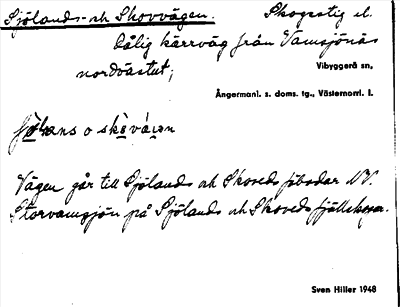 Sjölands- och Skovvägen. Skogsstig el.
dålig kärrväg från Vamsjönäs
nordvästut;
Vibyggerå sn,
Ångermanl. s. doms. tg., Västernorrl. l.
o
Vägen går till Sjölands och Skoveds fäbodar N.V.
Storvamsjön på Sjölands och Skoveds
Sven Hiller 1948